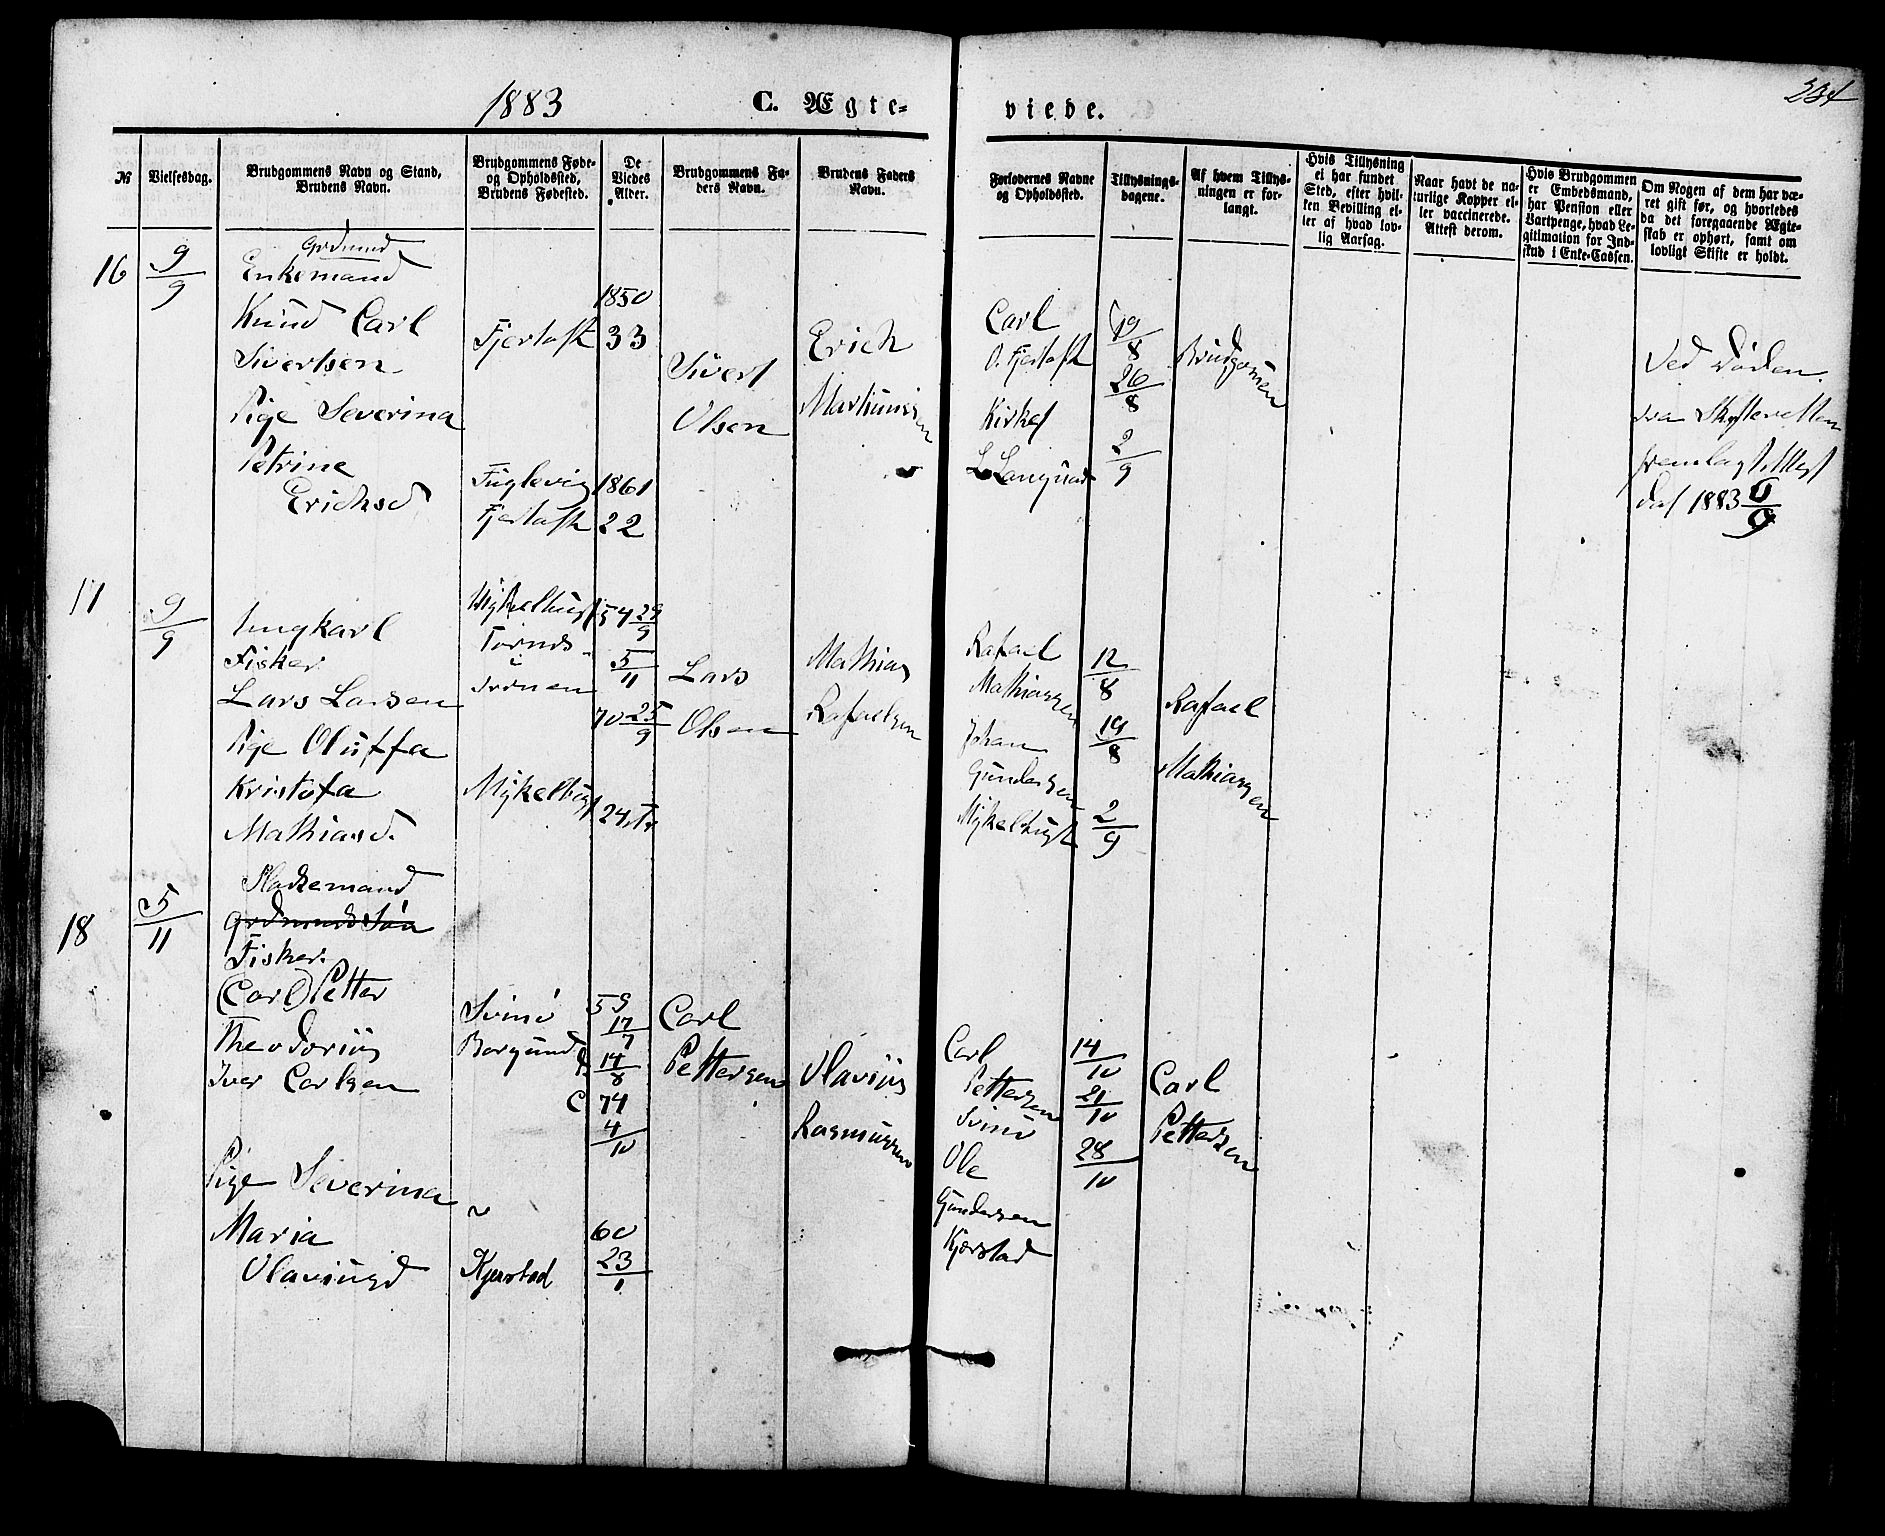 1883
C. Ægte=
viede.
234
№
Vielsesdag.
Brudgommens Navn og Stand,
Brudens Navn.
Brudgommens Føde-
og Opholdssted,
Brudens Fødested.
De
Viedes
Alder.
Brudgommens Fa-
ders Navn.
Brudens Faders
Navn.
Forlovernes Navne
og Opholdssted.
Tillysnings-
dagene.
Af hvem Tillys-
ningen er for-
langt.
Hvis Tillysning
ei har fundet
Sted, efter hvil-
ken Bevilling el-
ler af hvad lov-
lig Aarsag.
Naar havt de na-
turlige Kopper el-
ler vaccinerede.
Attest derom.
Hvis Brudgommen
er Embedsmand,
har Pension eller
Vartpenge, hvad Le-
gitimation for Ind-
skud i Enke-Cassen.
Om Nogen af dem har væ-
ret gift før, og hvorledes
da det foregaaende Ægte-
skab er ophørt, samt om
lovligt Skifte er holdt.
16
9/9
Grdmnd
Enkemand
Knud Carl
Sivertsen
Pige Severina
Petrine
Erichsd
Fjertoft
Fuglevig
Fjertoft
1850
33
1861
22
Sivert
Olsen
Erich
Martinussen
Carl
O. Fjertoft
Kirkef
L Longvad
19/8
26/8
2/9
Brudgomen
Ved Døden.
fra Skifteretten
fremlagt Attest
dat 1883 6/9
17
9/9
Ungkarl
Fisker
Lars Larsen
Pige Oluffa
Kristofa
Mathiasd.
Mykelbust
Mykelbust
54 29/9
5/11
70 25/9
24
Lars
Olsen
Mathias
Rafaelsen
Rafael
Mathiassen
Johan
Gundersen
Mykelbust
12/8
19/8
2/9
Rafael
Mathiassen
18
5/11
Pladsemand
Grdmands Søn
Fisker.
(Carl) Petter
Theodorius
Iver Carlsen
Pige Severina
Maria
Olaviusd
Svinø
Borgund
Kjerstad
59
17/7
14/8
C 74
4/10
60
23/1
Carl
Pettersen
Olavius
Rasmussen
Carl
Pettersen
Svinø
Ole
Gundersen
Kjerstad
14/10
21/10
28/10
Carl
Pettersen